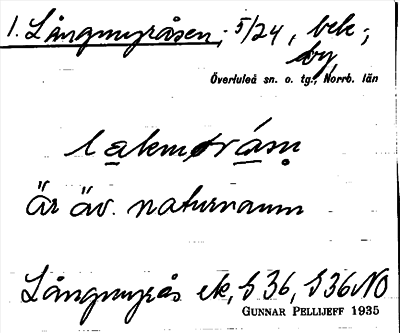 1. Långmyråsen, 5/24, bek.,
by,
Överluleå sn. o. tg., Norrb. län
är äv. naturnamn
Långmyrås ek, S 36, S 36 NO
GUNNAR PELLIJEFF 1935